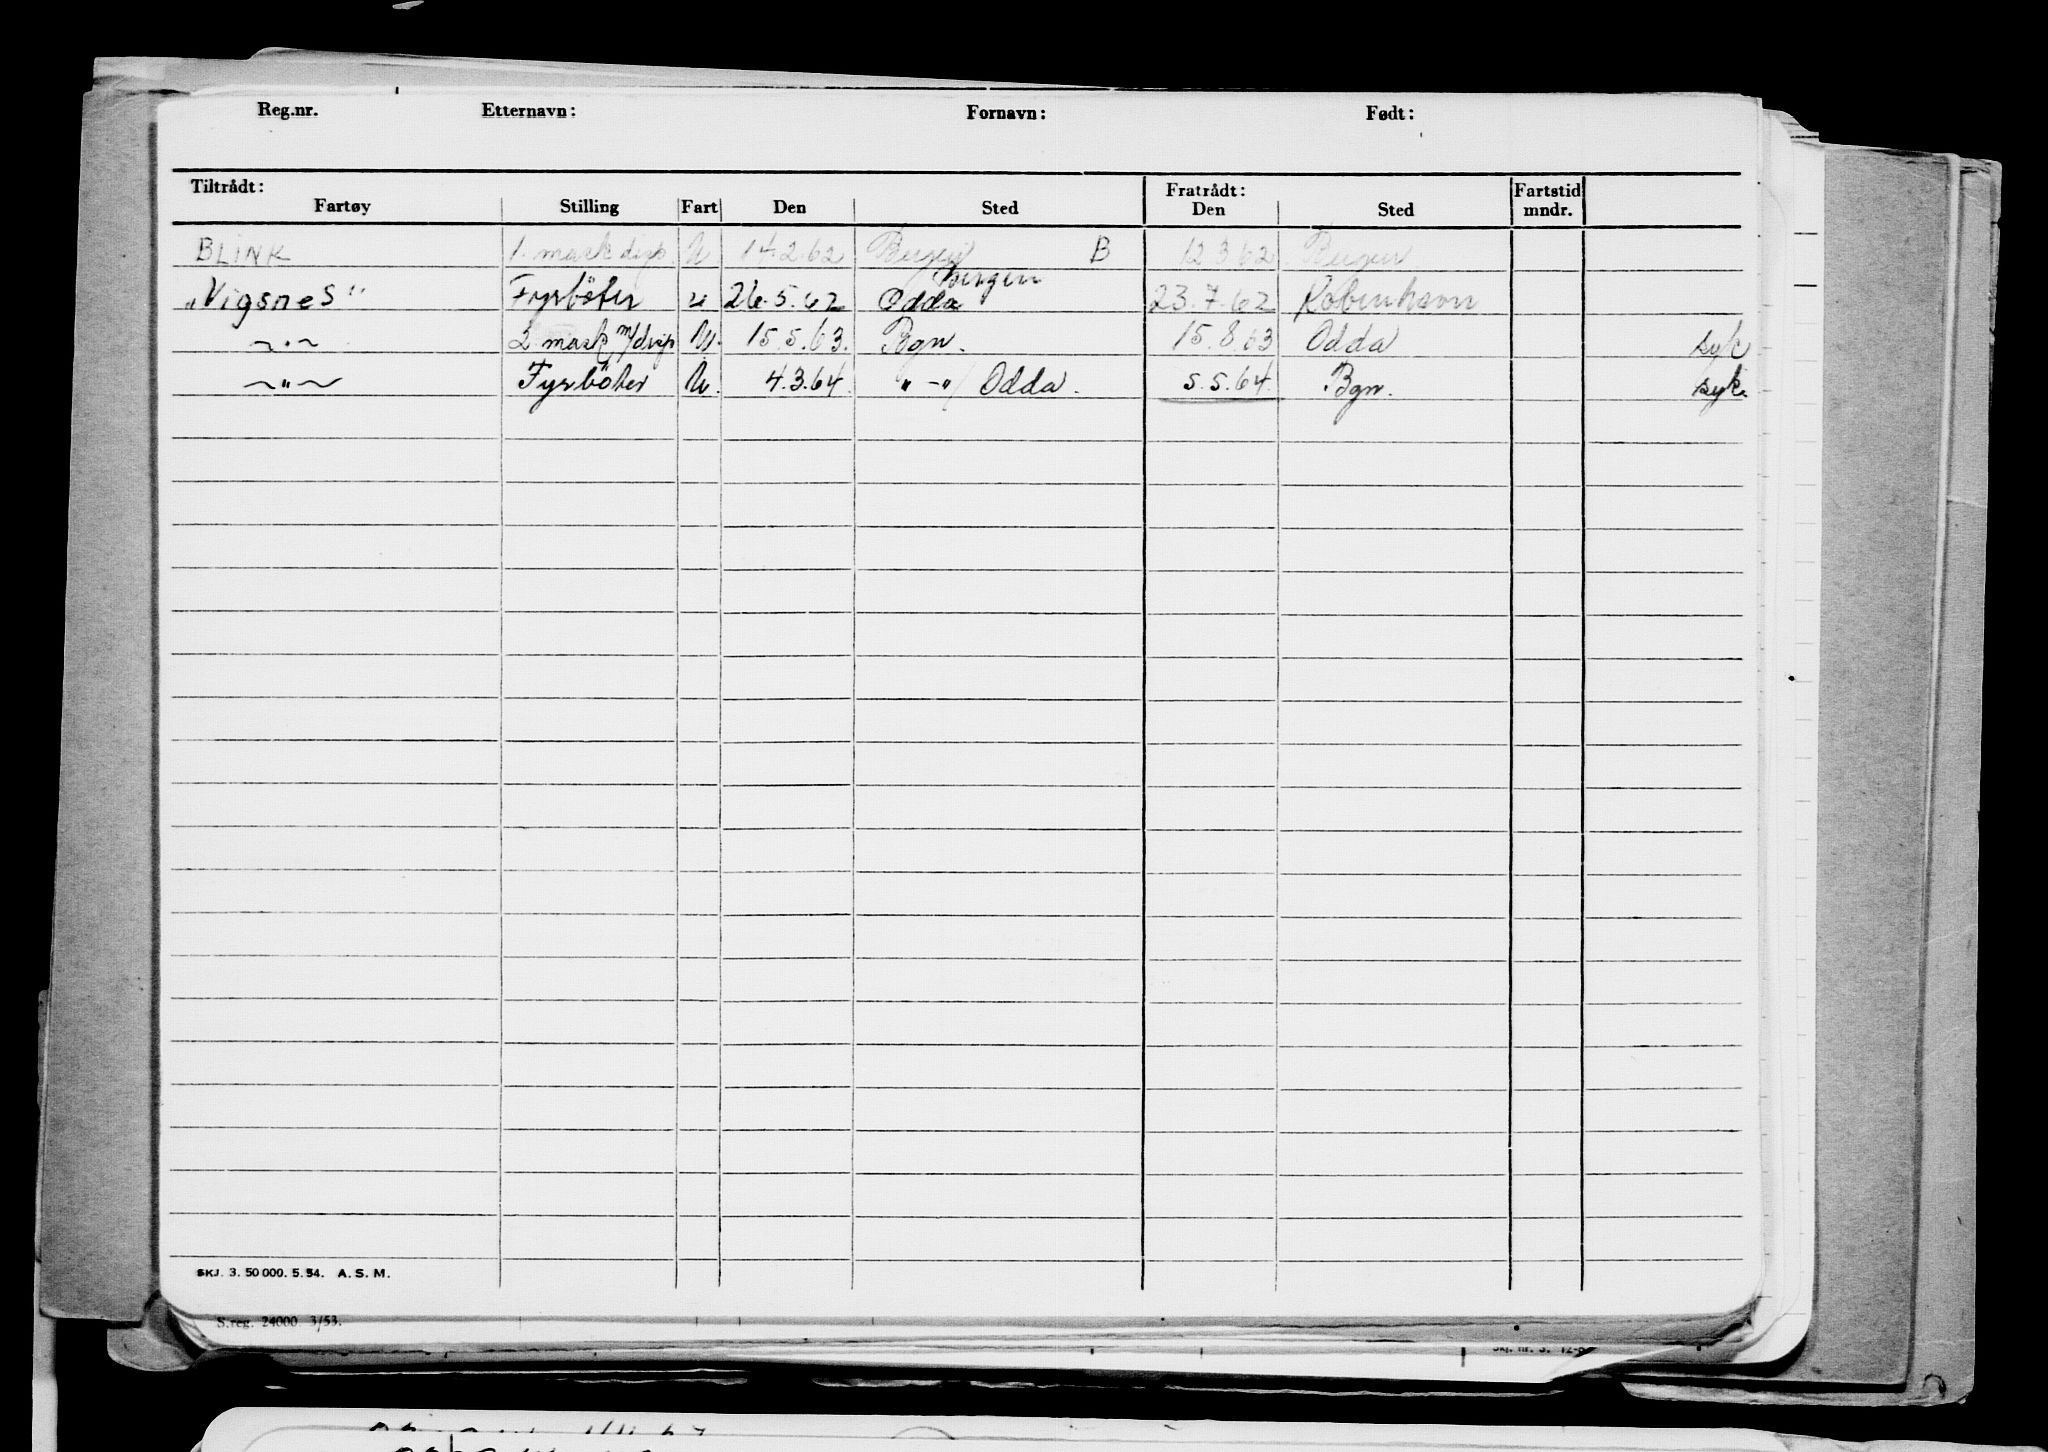 Reg.nr. Etternavn: Fornavn: Født:
Tiltrådt: Fratrådt: Fartstid
Fartøy Stilling Fart Den Sted Den Sted mndr.
BLINK 1. mask disp. U 14.2.62 Bergen B 12.3.62 Bergen
Bergen
"Vigsnes" Fyrböter u 26.5.62 Odda 23.7.62 Köbenhavn
~.~ 2 mask m/disp U. 15.5.63. Bgn. 15.8.63 Odda syk
~"~ Fyrböter U. 4.3.64. " -"/ Odda. 5.5.64. Bgn. syk.
SKJ. 3. 50 000. 5. 54. A. S. M.
S.reg. 24000 3/53.